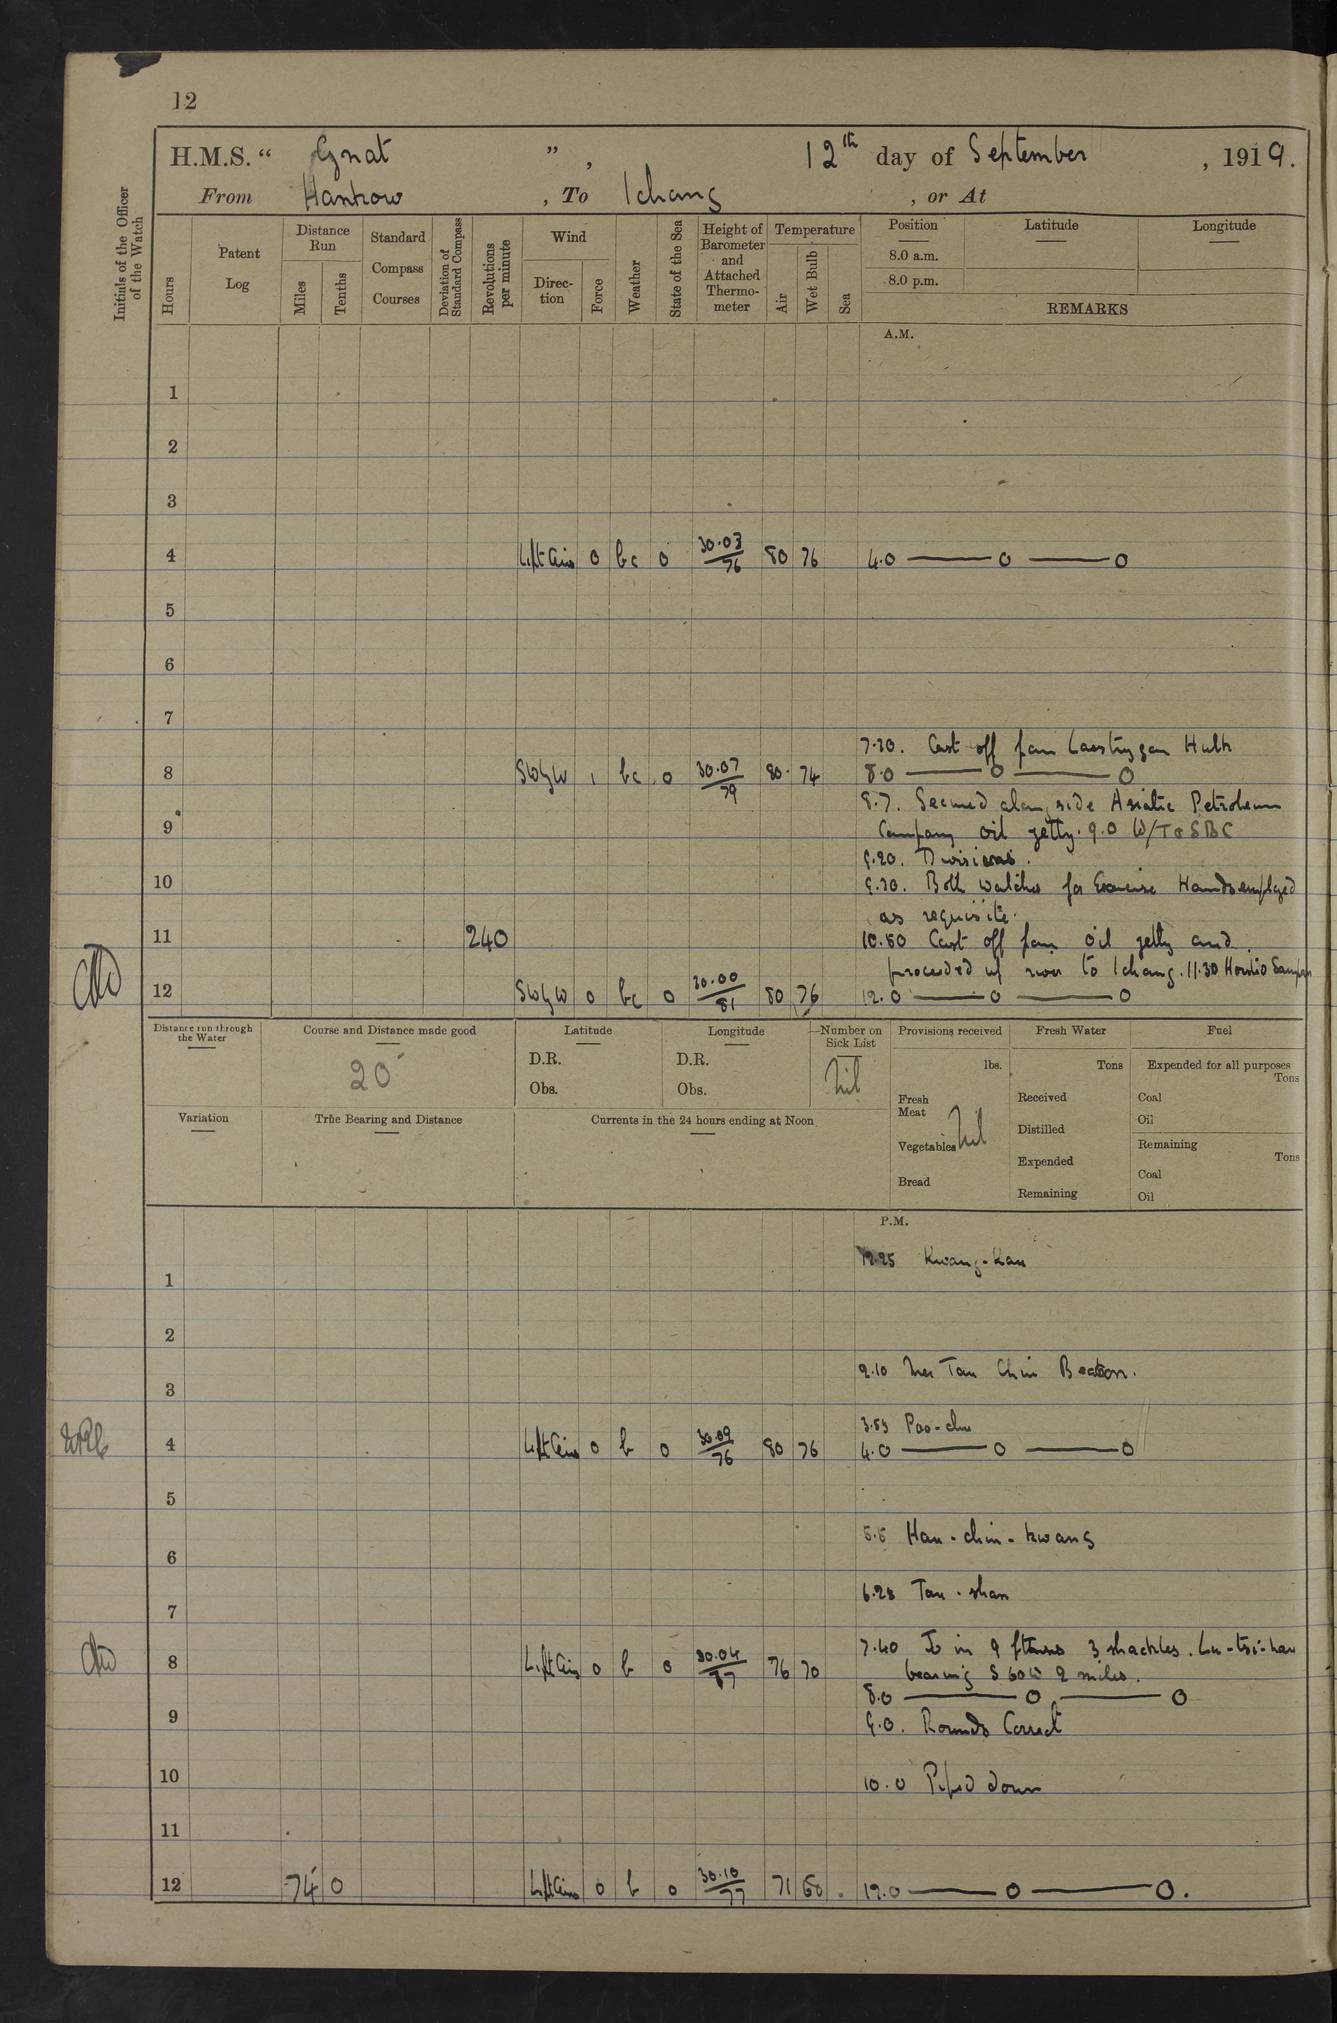 12
H.M.S. “ Gnat ” , 12th day of September , 1919.
From Hankow , To Ichang , or At
Initials of the Officer of the Watch
Hours
Patent Log
Distance Run
Miles
Tenths
Standard Compass Courses
Deviation of Standard Compass
Revolutions per minute
Wind
Direction
Force
Weather
State of the Sea
Height of Barometer and Attached Thermometer
Temperature
Air
Wet Bulb
Sea
Position
Latitude
Longitude
8.0 a.m.
8.0 p.m.
REMARKS
A.M.
1
2
3
4 Light Airs 0 bc 0 30.03/76 80 76 4.0 —— 0 —— 0
5
6
7
7.30. Cast off from Hulk
8 SWbyW 1 bc 0 30.07/79 80 74 8.0 —— 0 —— 0
8.7. Secured alongside Asiatic Petroleum
9 Company oil jetty. 9.0 W/T SBC
9.20. Divisions.
10 9.30. Both watches for Exercise Hands employed
as requisite.
11 240 10.50 Cast off from oil jetty and
proceeded up river to Ichang. 11.30
12 SWbyW 0 bc 0 30.00/81 80 76 12.0 —— 0 —— 0
Distance run through the Water
Course and Distance made good
20
Latitude
D.R.
Obs.
Longitude
D.R.
Obs.
Number on Sick List
Nil
Provisions received
lbs.
Fresh Meat
Vegetables Nil
Bread
Fresh Water
Tons
Received
Distilled
Expended
Remaining
Fuel
Expended for all purposes
Tons
Coal
Oil
Remaining
Tons
Coal
Oil
Variation
True Bearing and Distance
Currents in the 24 hours ending at Noon
P.M.
12.25 Kwang-kau
1
2
2.10 Tau Chin Beacon.
3
3.53 Pao-chu
4 Lt Airs 0 b 0 30.09/76 80 76 4.0 —— 0 —— 0
5
5.5 Han-chin-kwang
6
6.28 Tau-shan
7
7.40 in 9 3 shackles. Lu-tsi-kau
8 Light Airs 0 b 0 30.04/77 76 70 bearing S60W 2 miles.
8.0 —— 0 —— 0
9 9.0. Rounds Correct
10 10.0 Piped down
11
12 74 0 Lt Airs 0 b 0 30.10/77 71 68 12.0 —— 0 —— 0.